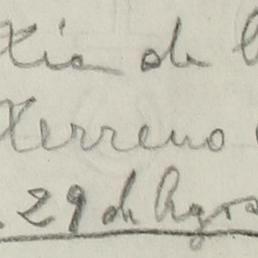 Xia de
Xerreno
29 de Agos